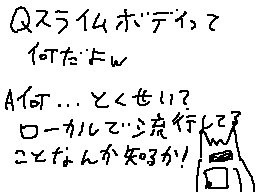 Qスライムボディって
何だよw
A何...とくせい?
ローカルで流行してる
ことなんか知るか!